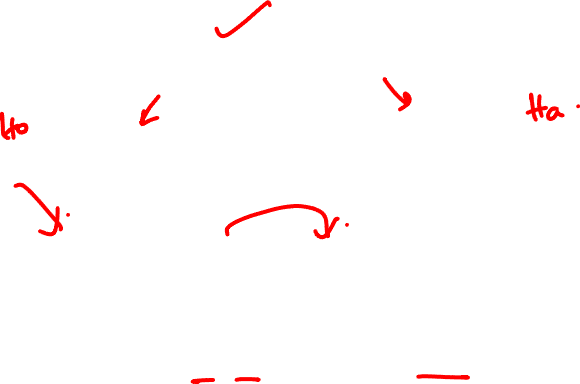 Ho
Ha